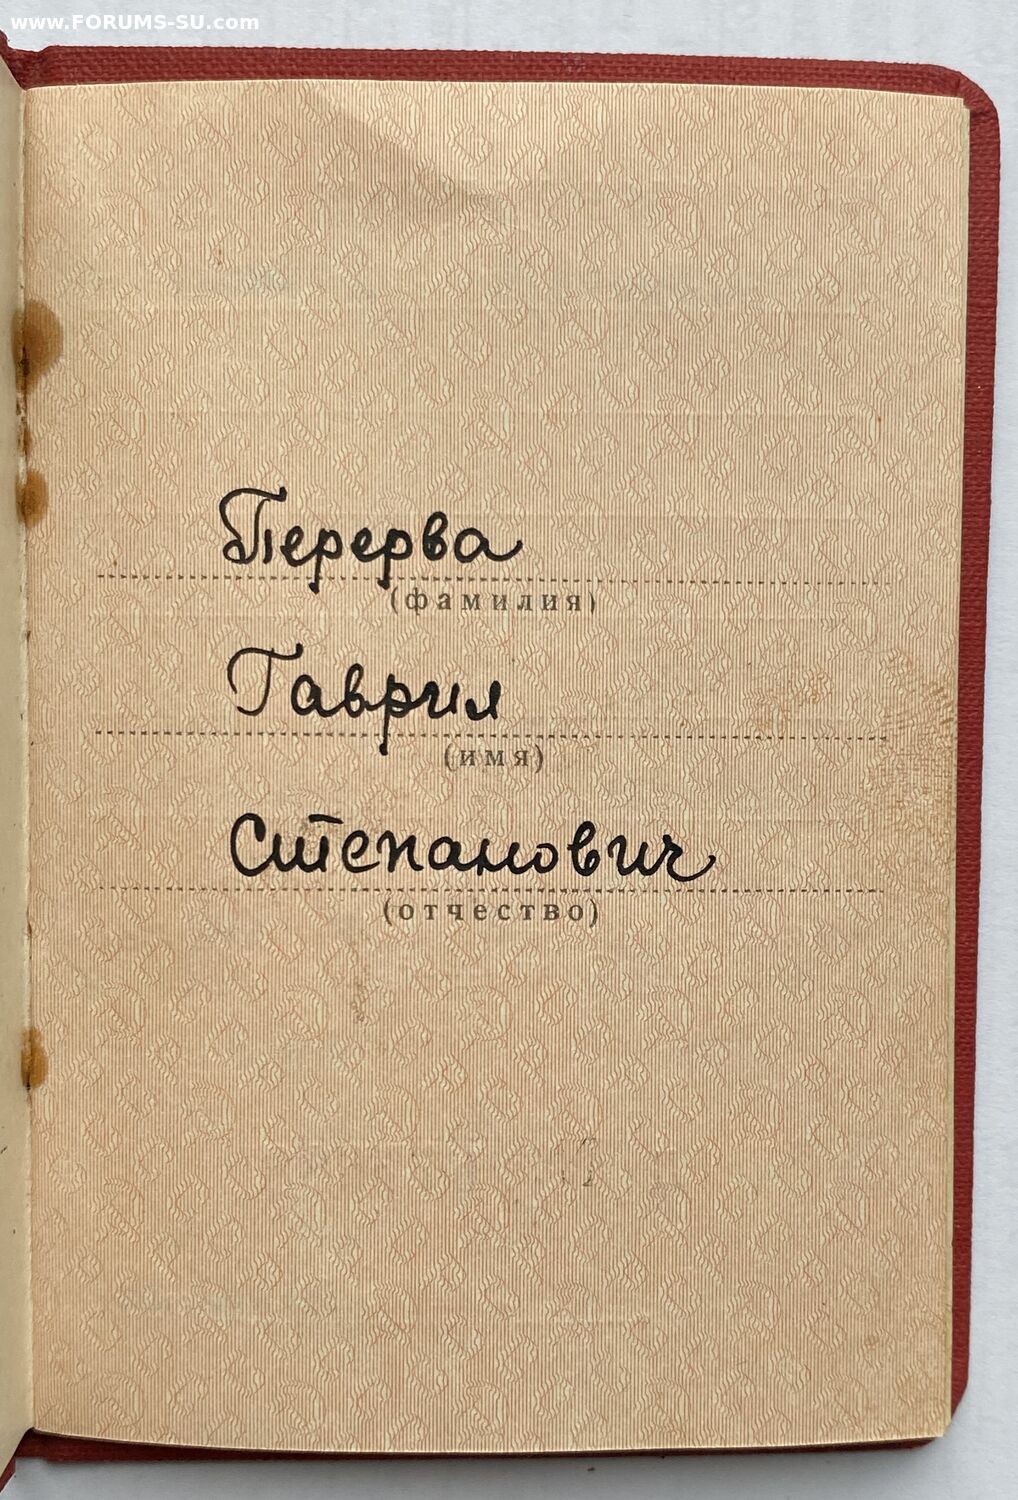 www.FORUMS-SU.com
Перерва
(фамилия)
Гаврил
(имя)
Степанович
(отчество)